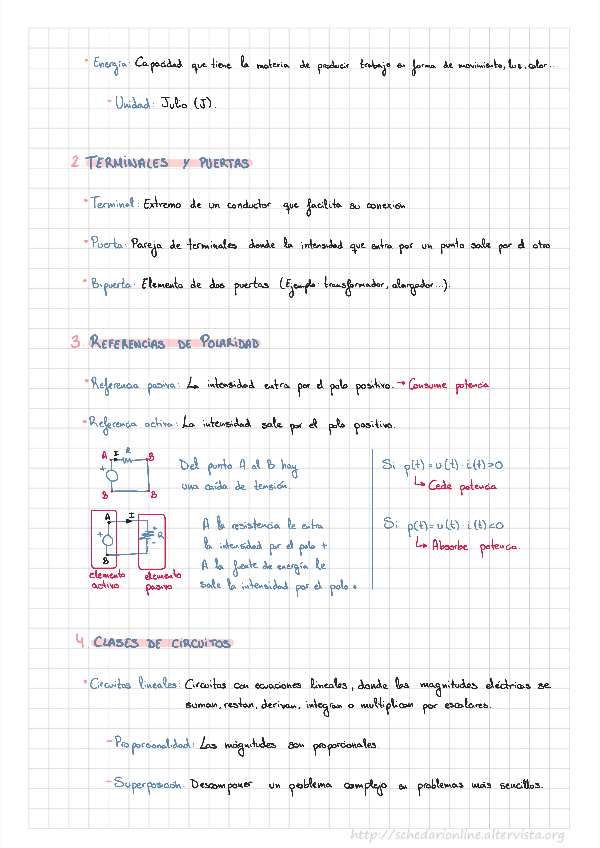 · Energía: Capacidad que tiene la materia de producir trabajo en forma de movimiento, luz, calor...
- Unidad: Julio (J).
2 TERMINALES Y PUERTAS
· Terminal: Extremo de un conductor que facilita su conexión.
· Puerta: Pareja de terminales donde la intensidad que entra por un punto sale por el otro
· Bipuerta: Elemento de dos puertas (Ejemplo: transformador, alargador...).
3. REFERENCIAS DE POLARIDAD
· Referencia pasiva: La intensidad entra por el polo positivo. → Consume potencia
· Referencia activa: La intensidad sale por el polo positivo.
A I R B
+
B B
Del punto A al B hay
una caída de tensión.
A I
+ + R
B
elemento activo
elemento pasivo
A la resistencia le entra
la intensidad por el polo +
A la fuente de energía le
sale la intensidad por el polo +
Si p(t) = u(t) · i(t) > 0
↳ Cede potencia
Si p(t) = u(t) · i(t) < 0
↳ Absorbe potencia.
4. CLASES DE CIRCUITOS
· Circuitos lineales: Circuitos con ecuaciones lineales, donde las magnitudes eléctricas se
suman, restan, derivan, integran o multiplican por escalares.
- Proporcionalidad: Las magnitudes son proporcionales.
- Superposición: Descomponer un problema complejo en problemas más sencillos.
http://schedarionline.altervista.org